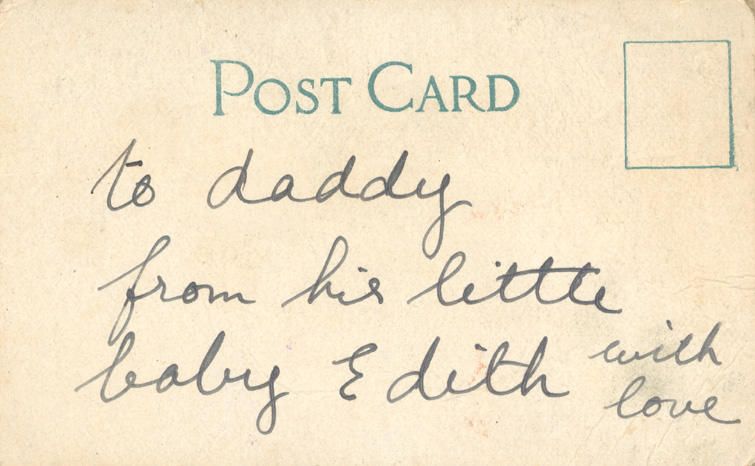 POST CARD
to daddy
from his little
baby Edith with
love